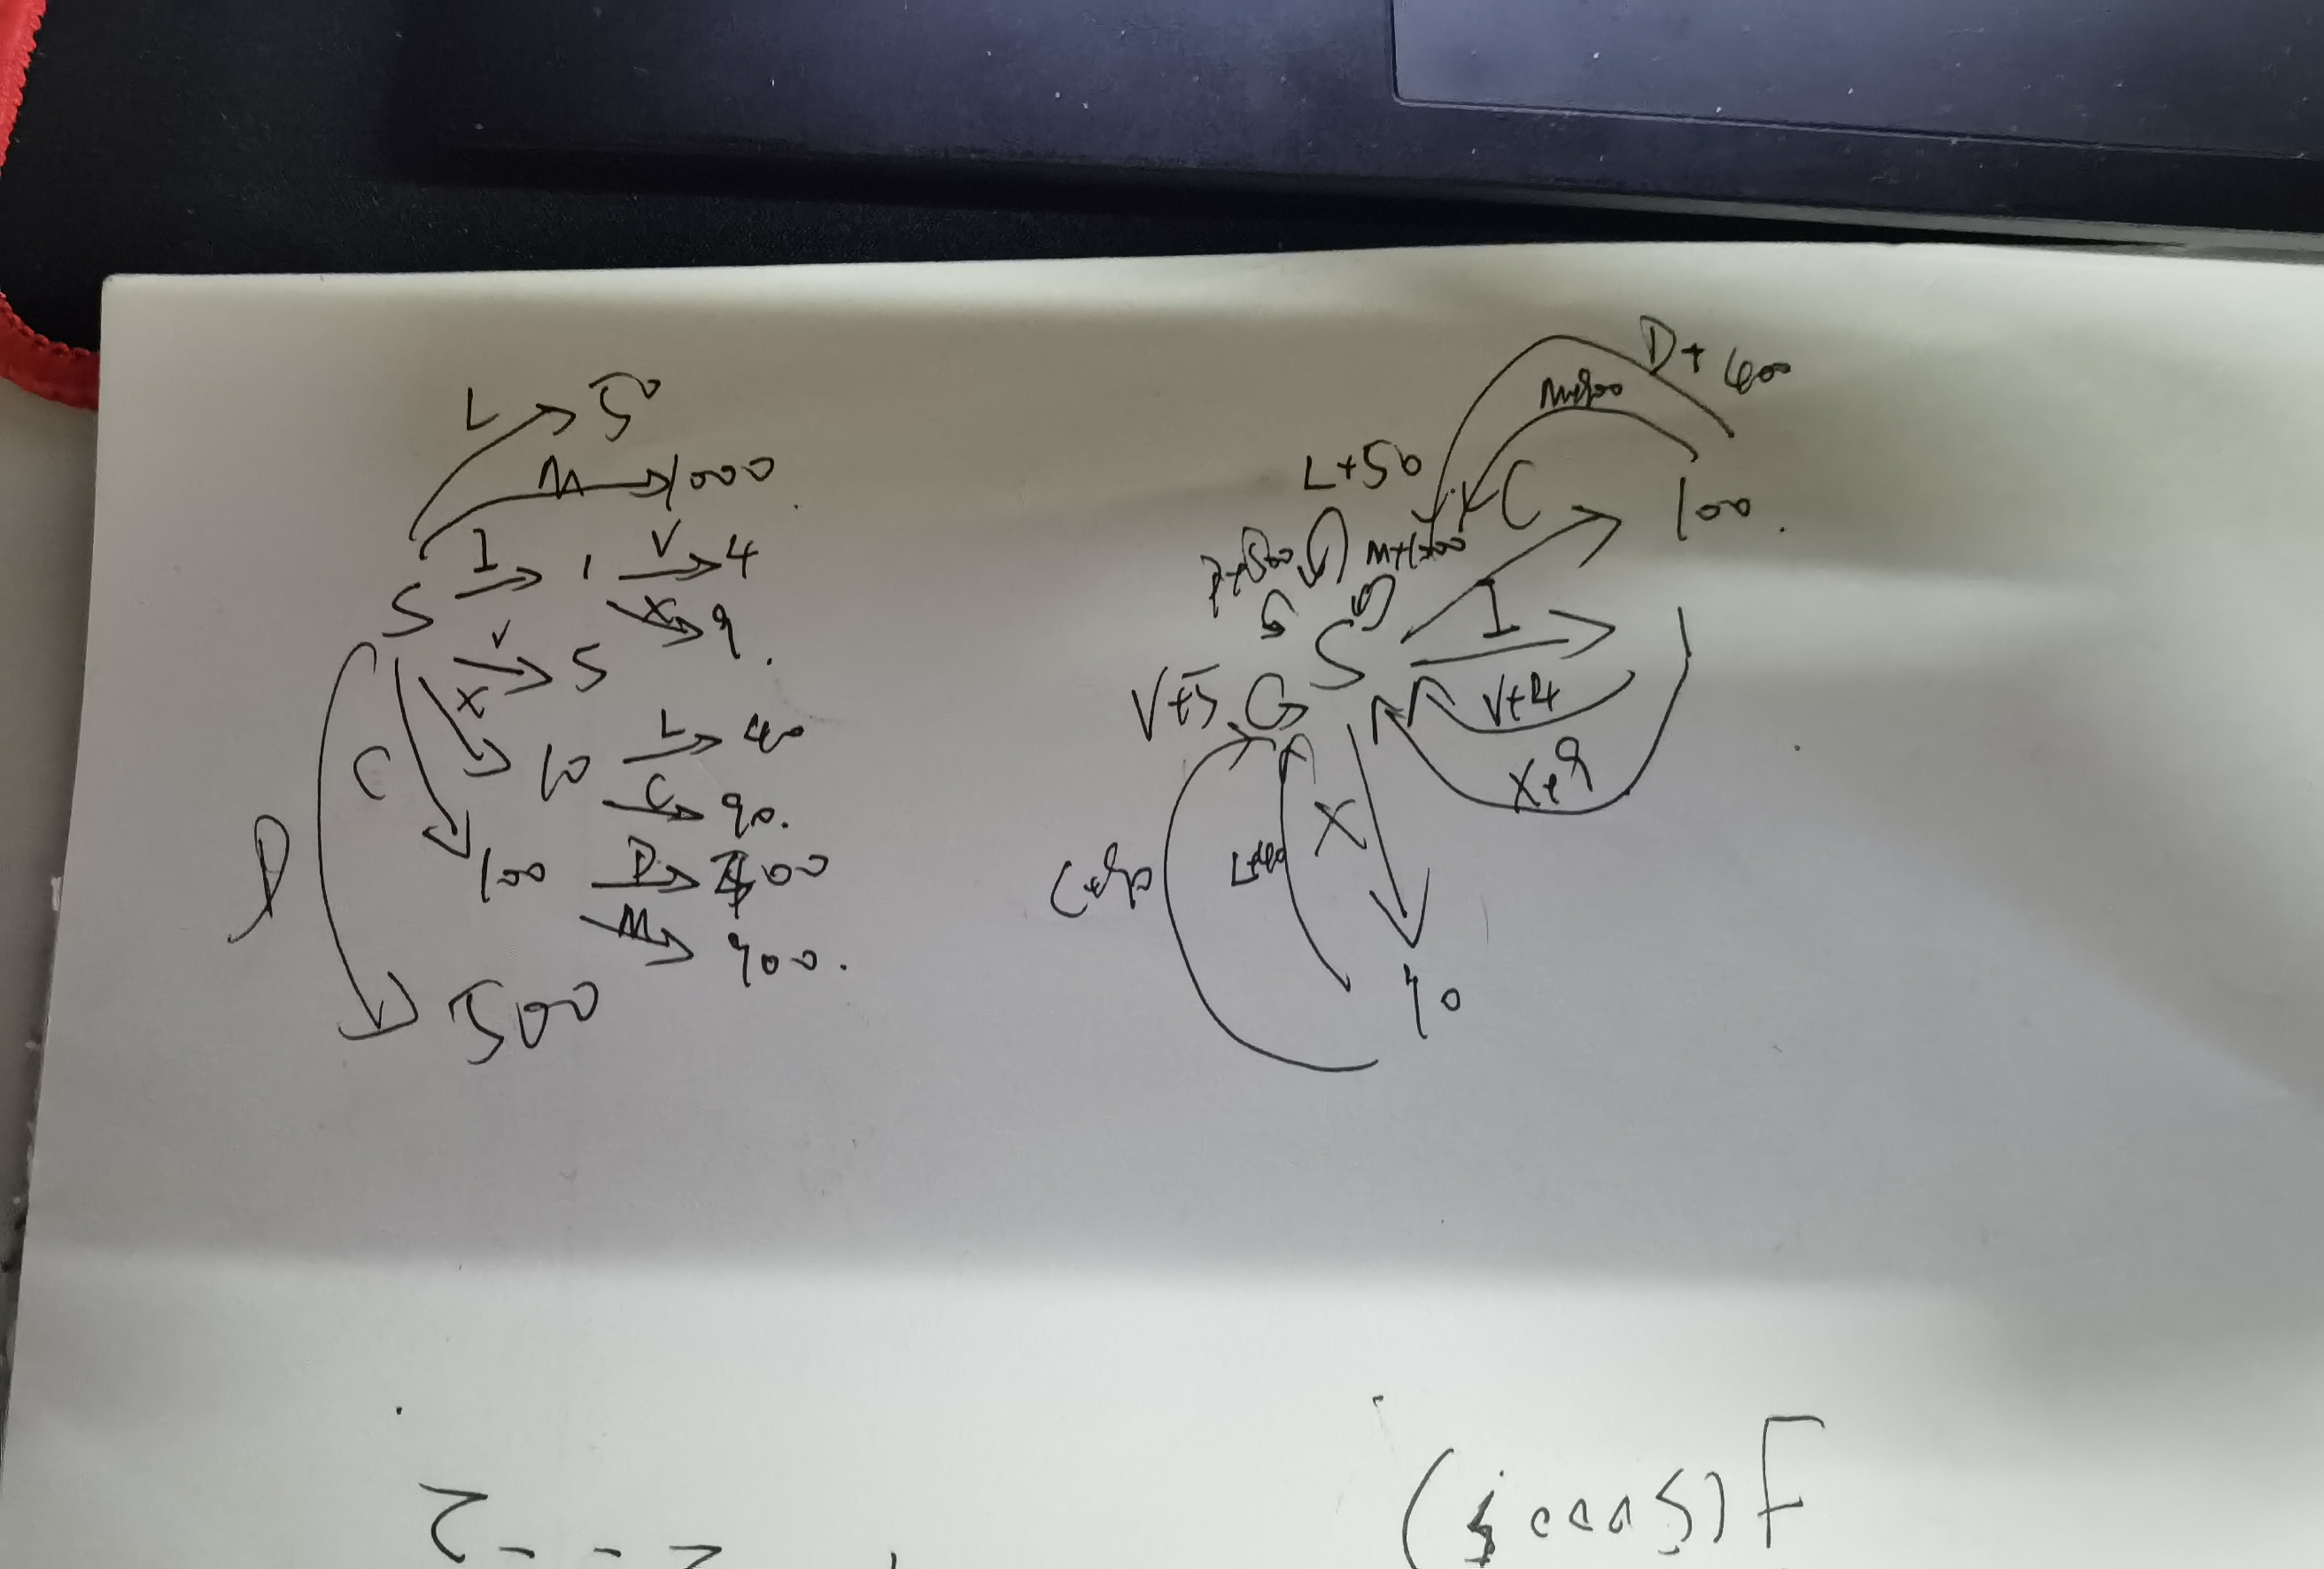 L → 50
M → 1000
S I → 1 V → 4
X → 9.
V → 5
X → 10 L → 40
C → 90.
C → 100 D → 400
M → 900.
D → 500
D+400
M+900
L+50
C → 100.
D+500
M+1000
S I →
V+5
V+4
X+9
C+90
L+40
X
10